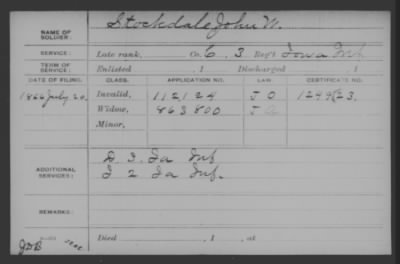 NAME OF SOLDIER: Stockdale John W.
SERVICE: Late rank, Co. C. 3 Reg't Iowa Inf
TERM OF SERVICE: Enlisted , 1 Discharged , 1
DATE OF FILING. CLASS. APPLICATION NO. LAW. CERTIFICATE NO.
July 20, Invalid, 112124 J O
Widow, 863800
Minor,
ADDITIONAL SERVICES: D 3. Ia Inf
I 2 Ia Inf.
REMARKS:
Died , 1 , at